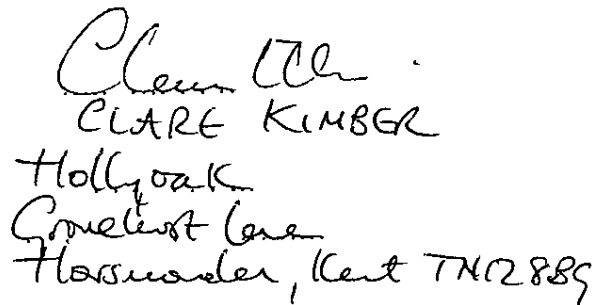 CLARE KIMBER
Hollyoak
Lane
Horsmonden, Kent TN12 8BG